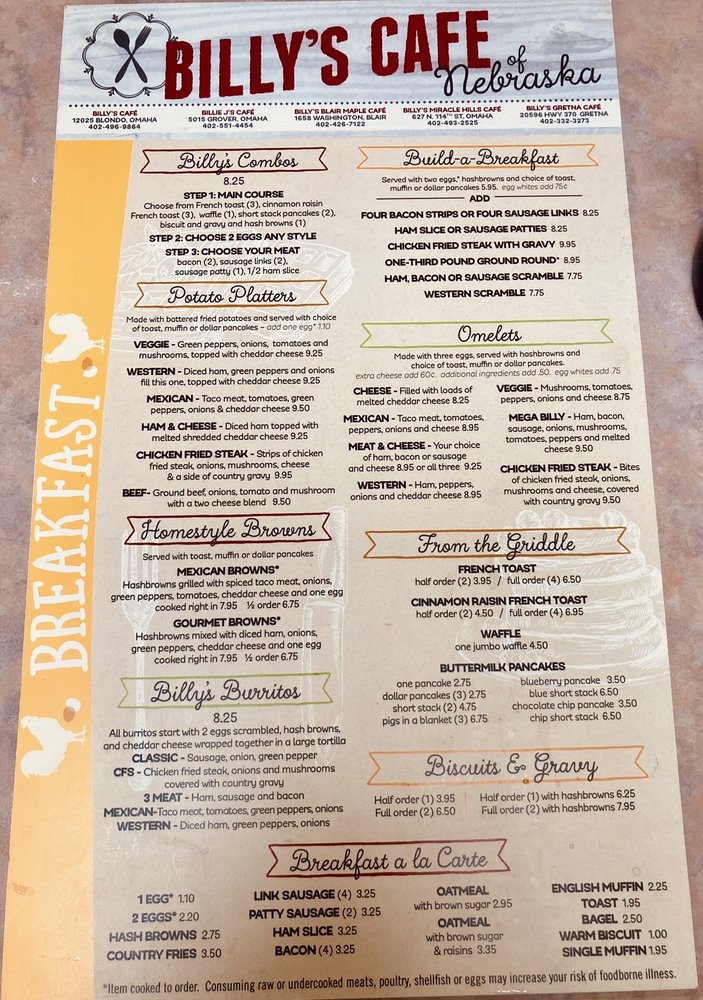 BILLY'S CAFE
of Nebraska
BILLY'S CAFÉ
12025 BLONDO, OMAHA
402-496-9864
BILLIE J'S CAFÉ
5015 GROVER, OMAHA
402-551-4454
BILLY'S BLAIR MAPLE CAFÉ
1658 WASHINGTON, BLAIR
402-426-7122
BILLY'S MIRACLE HILLS CAFÉ
627 N. 114TH ST, OMAHA
402-493-2525
BILLY'S GRETNA CAFÉ
20596 HWY 370 GRETNA
402-332-3273
BREAKFAST
Billy's Combos
8.25
STEP 1: MAIN COURSE
Choose from French toast (3), cinnamon raisin
French toast (3), waffle (1), short stack pancakes (2),
biscuit and gravy and hash browns (1)
STEP 2: CHOOSE 2 EGGS ANY STYLE
STEP 3: CHOOSE YOUR MEAT
bacon (2), sausage links (2),
sausage patty (1), 1/2 ham slice
Potato Platters
Made with battered fried potatoes and served with choice
of toast, muffin or dollar pancakes – add one egg* 1.10
VEGGIE - Green peppers, onions, tomatoes and
mushrooms, topped with cheddar cheese 9.25
WESTERN - Diced ham, green peppers and onions
fill this one, topped with cheddar cheese 9.25
MEXICAN - Taco meat, tomatoes, green
peppers, onions & cheddar cheese 9.50
HAM & CHEESE - Diced ham topped with
melted shredded cheddar cheese 9.25
CHICKEN FRIED STEAK - Strips of chicken
fried steak, onions, mushrooms, cheese
& a side of country gravy 9.95
BEEF- Ground beef, onions, tomato and mushroom
with a two cheese blend 9.50
Homestyle Browns
Served with toast, muffin or dollar pancakes
MEXICAN BROWNS*
Hashbrowns grilled with spiced taco meat, onions,
green peppers, tomatoes, cheddar cheese and one egg
cooked right in 7.95 ½ order 6.75
GOURMET BROWNS*
Hashbrowns mixed with diced ham, onions,
green peppers, cheddar cheese and one egg
cooked right in 7.95 ½ order 6.75
Billy's Burritos
8.25
All burritos start with 2 eggs scrambled, hash browns,
and cheddar cheese wrapped together in a large tortilla
CLASSIC - Sausage, onion, green pepper
CFS - Chicken fried steak, onions and mushrooms
covered with country gravy
3 MEAT - Ham, sausage and bacon
MEXICAN-Taco meat, tomatoes, green peppers, onions
WESTERN - Diced ham, green peppers, onions
Build-a-Breakfast
Served with two eggs,* hashbrowns and choice of toast,
muffin or dollar pancakes 5.95. egg whites add 75¢
ADD
FOUR BACON STRIPS OR FOUR SAUSAGE LINKS 8.25
HAM SLICE OR SAUSAGE PATTIES 8.25
CHICKEN FRIED STEAK WITH GRAVY 9.95
ONE-THIRD POUND GROUND ROUND* 8.95
HAM, BACON OR SAUSAGE SCRAMBLE 7.75
WESTERN SCRAMBLE 7.75
Omelets
Made with three eggs, served with hashbrowns and
choice of toast, muffin or dollar pancakes.
extra cheese add 60¢. additional ingredients add .50. egg whites add .75
CHEESE - Filled with loads of
melted cheddar cheese 8.25
MEXICAN - Taco meat, tomatoes,
peppers, onions and cheese 8.95
MEAT & CHEESE - Your choice
of ham, bacon or sausage
and cheese 8.95 or all three 9.25
WESTERN - Ham, peppers,
onions and cheddar cheese 8.95
VEGGIE - Mushrooms, tomatoes,
peppers, onions and cheese 8.75
MEGA BILLY - Ham, bacon,
sausage, onions, mushrooms,
tomatoes, peppers and melted
cheese 9.50
CHICKEN FRIED STEAK - Bites
of chicken fried steak, onions,
mushrooms and cheese, covered
with country gravy 9.50
From the Griddle
FRENCH TOAST
half order (2) 3.95 / full order (4) 6.50
CINNAMON RAISIN FRENCH TOAST
half order (2) 4.50 / full order (4) 6.95
WAFFLE
one jumbo waffle 4.50
BUTTERMILK PANCAKES
one pancake 2.75
dollar pancakes (3) 2.75
short stack (2) 4.75
pigs in a blanket (3) 6.75
blueberry pancake 3.50
blue short stack 6.50
chocolate chip pancake 3.50
chip short stack 6.50
Biscuits & Gravy
Half order (1) 3.95
Full order (2) 6.50
Half order (1) with hashbrowns 6.25
Full order (2) with hashbrowns 7.95
Breakfast a la Carte
1 EGG* 1.10
2 EGGS* 2.20
HASH BROWNS 2.75
COUNTRY FRIES 3.50
LINK SAUSAGE (4) 3.25
PATTY SAUSAGE (2) 3.25
HAM SLICE 3.25
BACON (4) 3.25
OATMEAL
with brown sugar 2.95
OATMEAL
with brown sugar
& raisins 3.35
ENGLISH MUFFIN 2.25
TOAST 1.95
BAGEL 2.50
WARM BISCUIT 1.00
SINGLE MUFFIN 1.95
*Item cooked to order. Consuming raw or undercooked meats, poultry, shellfish or eggs may increase your risk of foodborne illness.